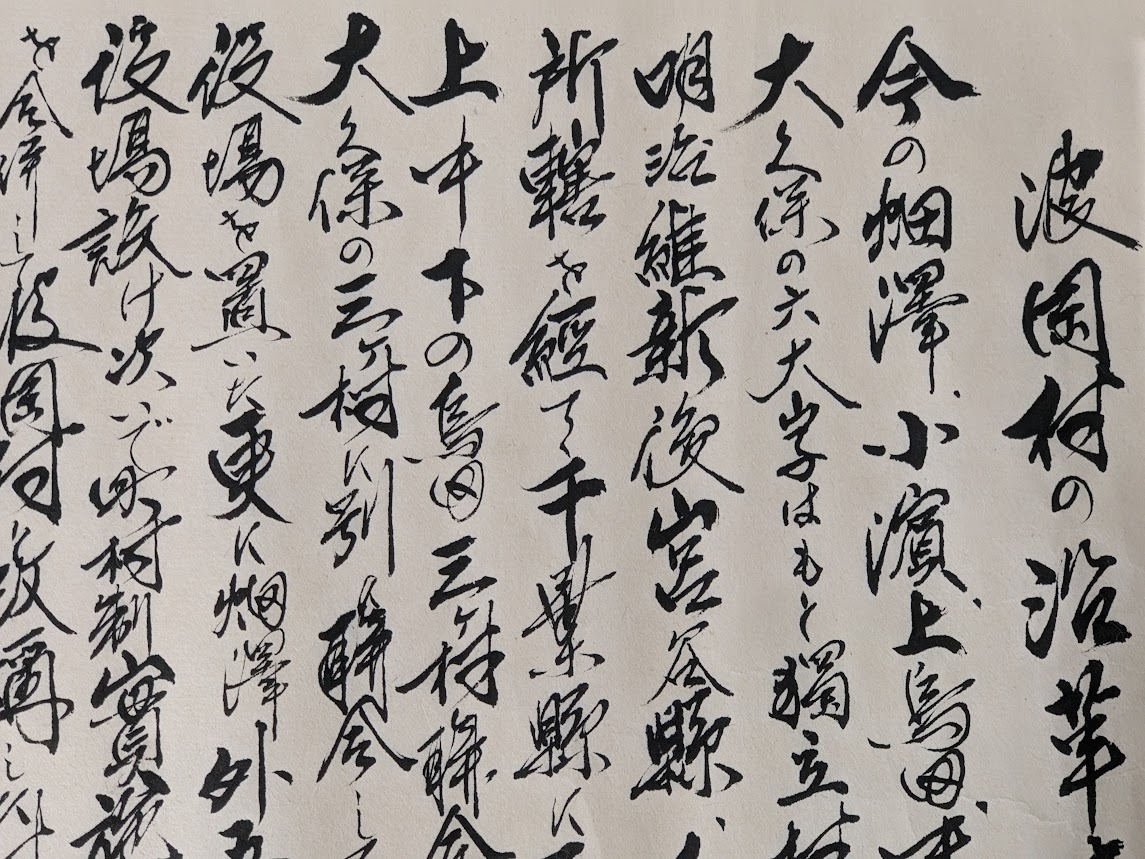 波岡村の沿革
今の畑澤、小濱、上烏田、中
大久保の六大字はもと獨立村
明治維新後宮谷縣
所轄を經て千葉縣に
上中下の烏田三ヶ村聯合
大久保の三ヶ村に別聯合し
役場を置いた更に畑澤外五
役場設け次いで町村制實施
を合併し波岡村と改稱し